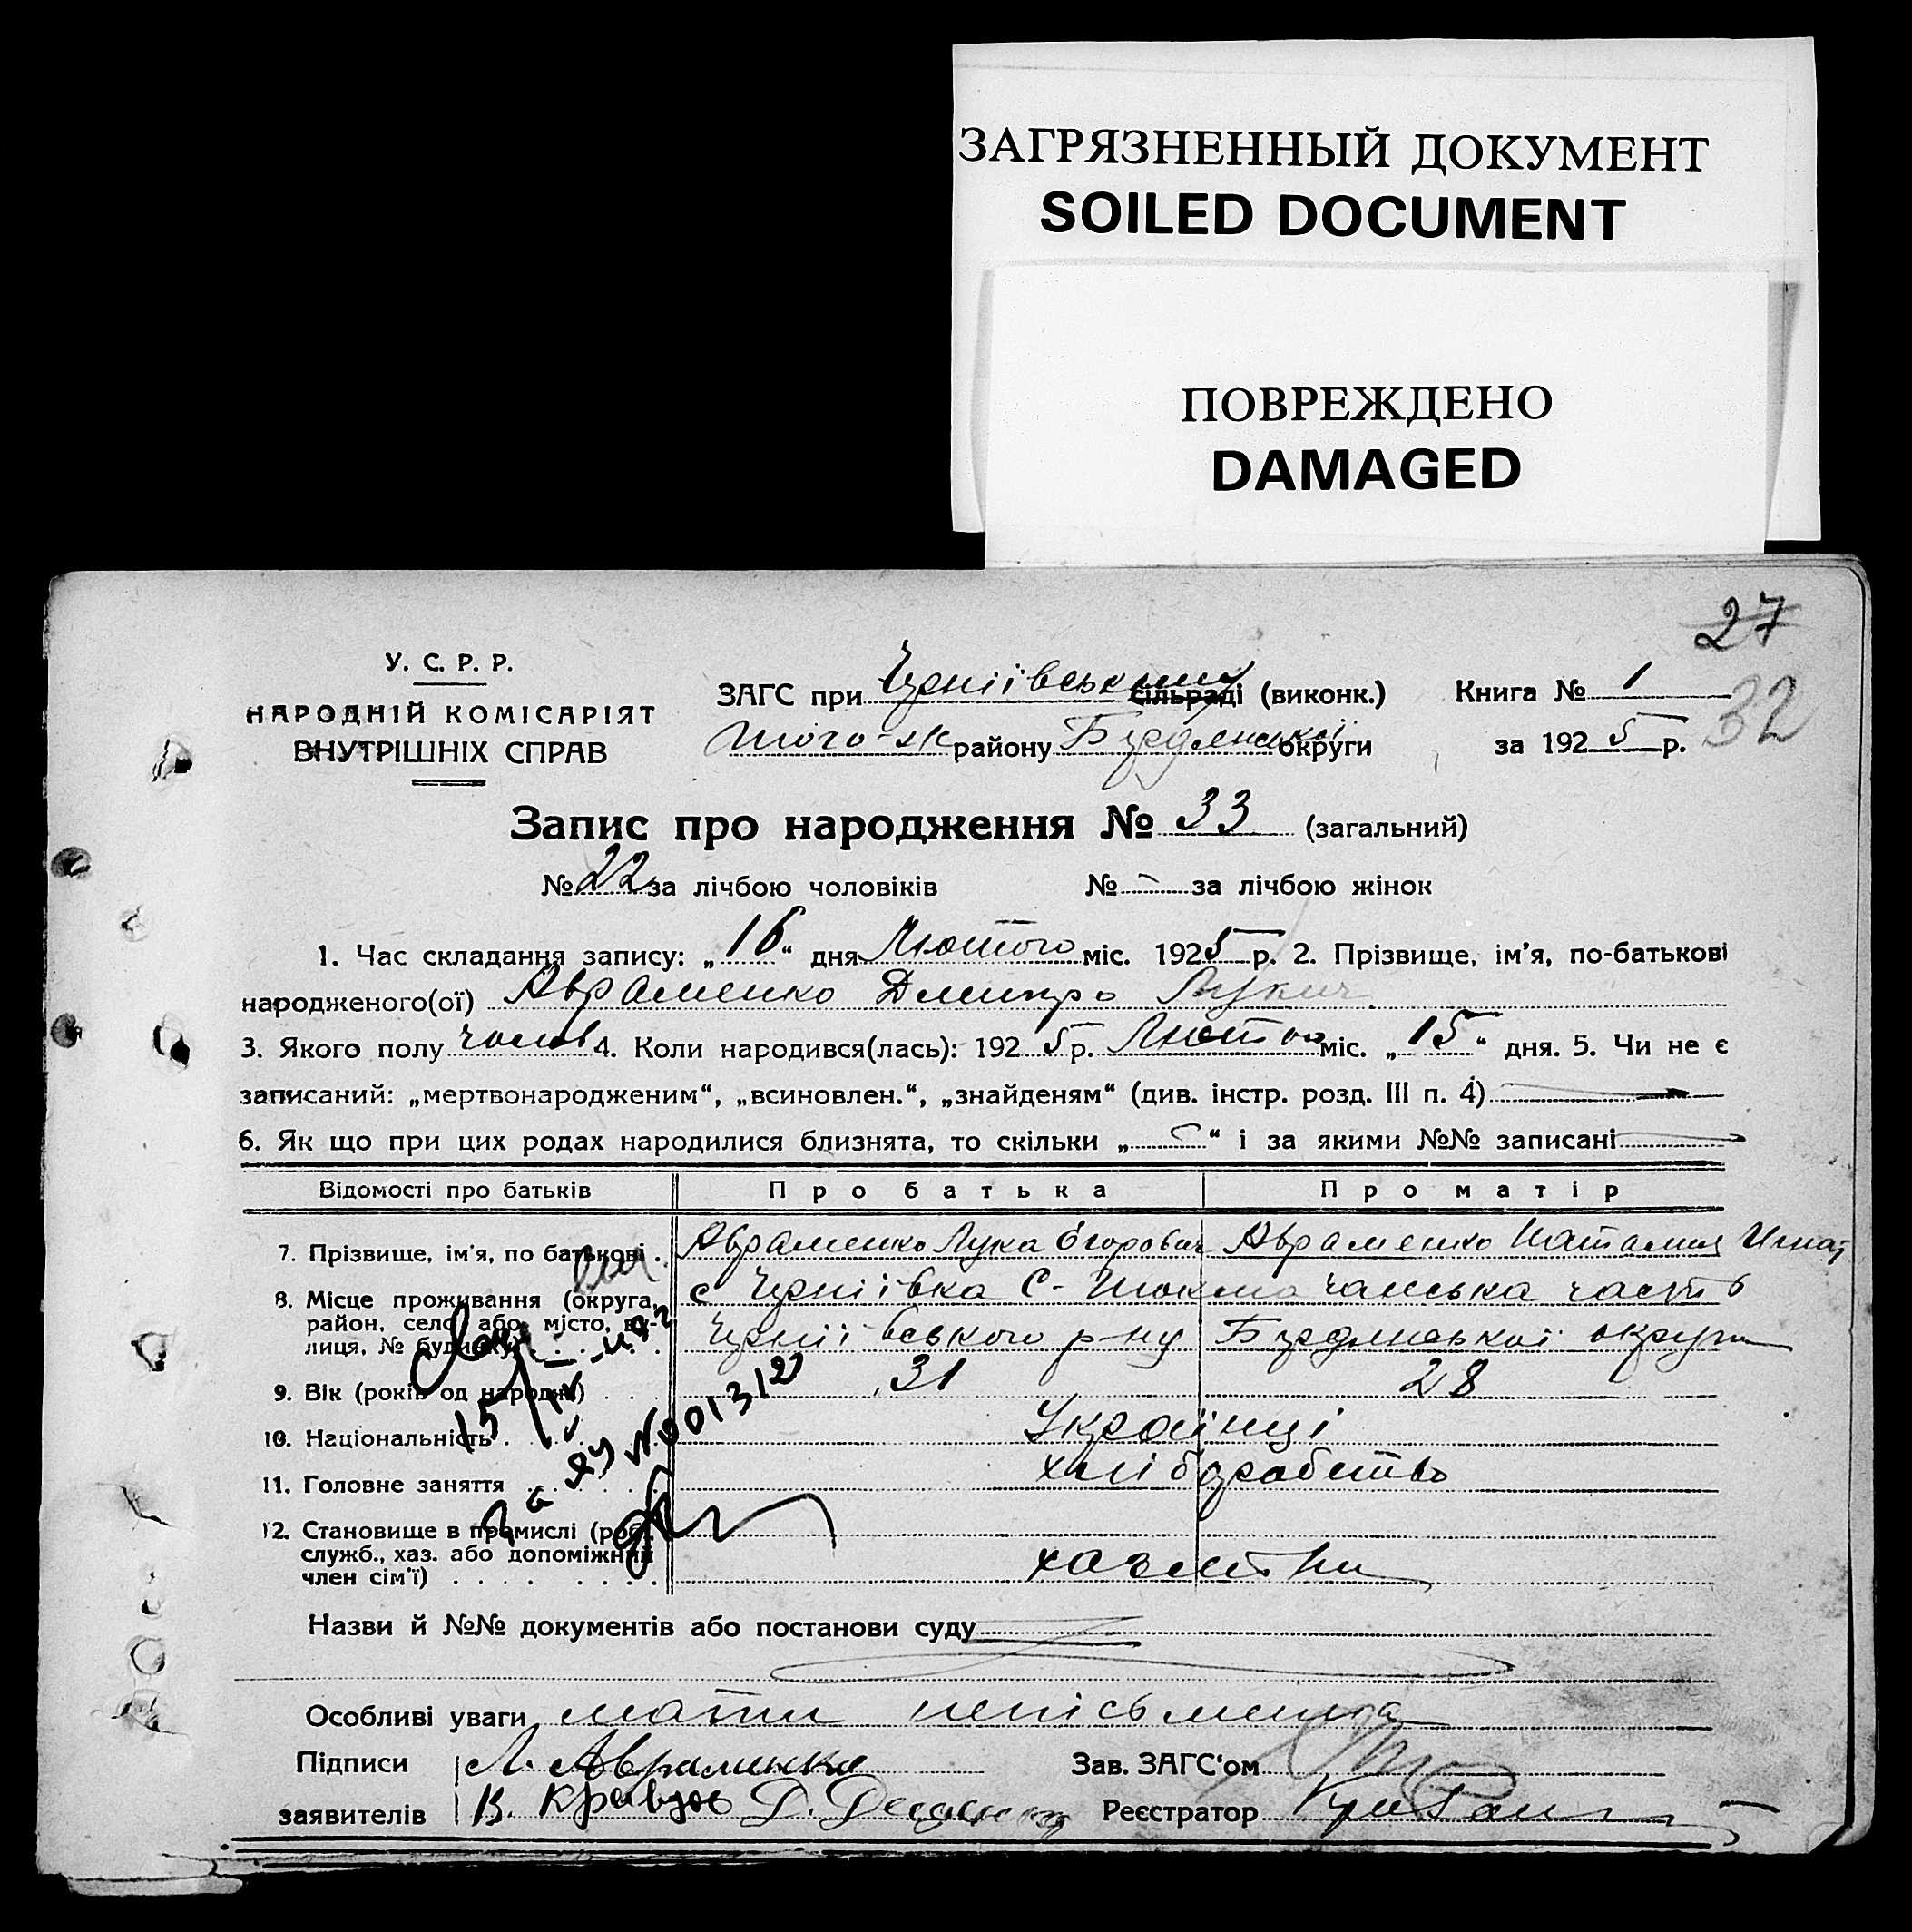 ЗАГРЯЗНЕННЫЙ ДОКУМЕНТ
SOILED DOCUMENT
ПОВРЕЖДЕНО
DAMAGED
27
32
У. С. Р. Р.
НАРОДНІЙ КОМІСАРІЯТ
ВНУТРІШНІХ СПРАВ
ЗАГС при сільраді (виконк.) Книга № 1
району округи за 1925 р.
Запис про народження № 33 (загальний)
№ 22 за лічбою чоловіків № - за лічбою жінок
1. Час складання запису: „16“ дня Лютого міс. 1925 р. 2. Прізвище, ім'я, по-батькові
народженого(ої) Авраменко Дмитро Лукич
3. Якого полу чолов 4. Коли народився(лась): 1925 р. Лютого міс. „15“ дня. 5. Чи не є
записаний: „мертвонародженим“, „всиновлен.“, „знайденям“ (див. інстр. розд. III п. 4)
6. Як що при цих родах народилися близнята, то скільки „-“ і за якими №№ записані
Відомості про батьків Про батька Про матір
7. Прізвище, ім'я, по батькові . Авраменко Лука Егорович Авраменко Наталия Игнат
8. Місце проживання (округа, район, село або місто, вулиця, № будинку) с Черніївка С-Токмачанська часть
р-ну Бердянської округи
9. Вік (років од народж) . . . 31 28
10. Національність . Українці
11. Головне заняття . хліборобство
12. Становище в промислі (роб.,
служб., хаз. або допоміжний
член сім'ї) . . . .
№ 001312
Назви й №№ документів або постанови суду
Особливі уваги мати неписьменна
Підписи Л. Авраминко Зав. ЗАГС'ом
заявителів В. Кравцов Реєстратор